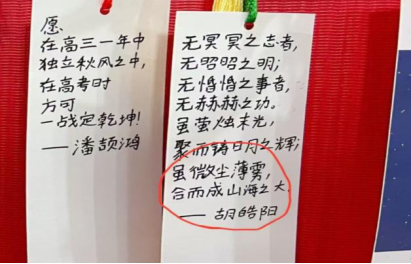 愿
在高三一年中
独立秋风之中,
在高考时
方可
一战定乾坤!
——潘颉鸿
无冥冥之志者,
无昭昭之明;
无惛惛之事者,
无赫赫之功。
虽萤烛末光,
聚而铸日月之辉;
虽微尘薄雾,
合而成山海之大
——胡皓阳